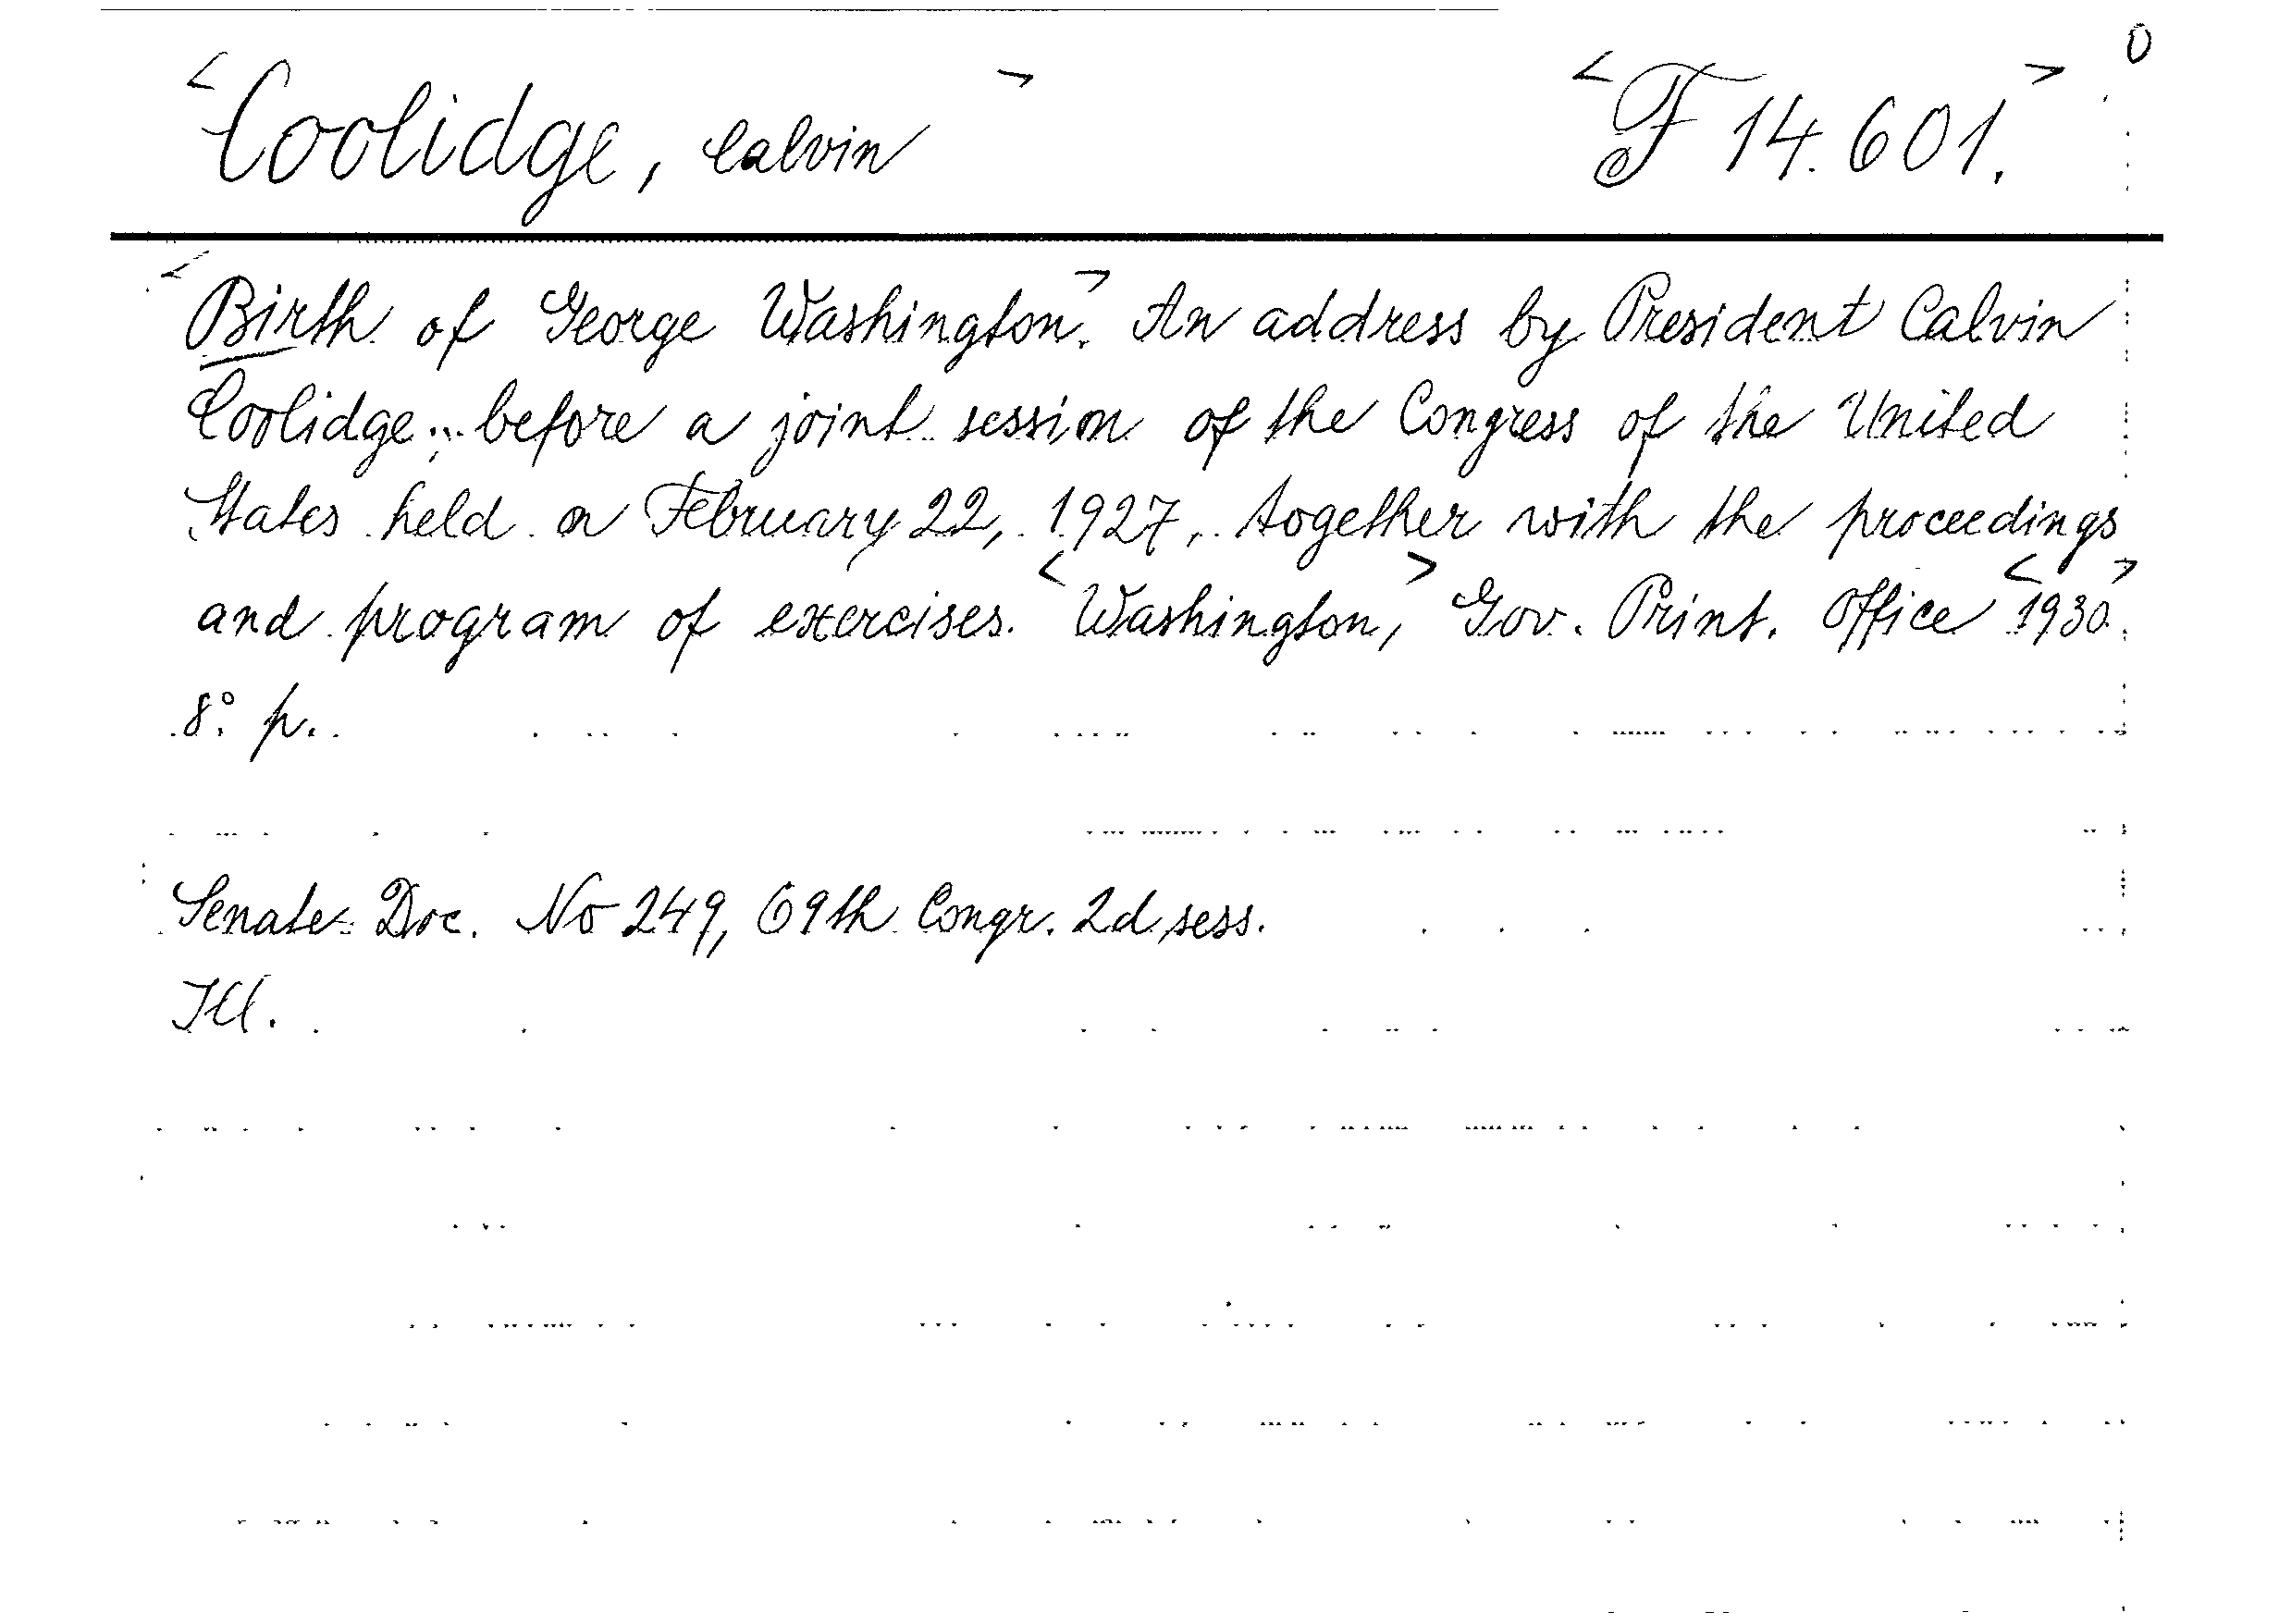 <Coolidge, Calvin> <F 14.601.> 0
<Birth of George Washington.> An address by President Calvin
Coolidge, before a joint session of the Congress of the United
States held on February 22, 1927, together with the proceedings
and program of exercises. <Washington,> Gov. Print. Office <1930.>
8° p.
Senate Doc. No 249, 69th Congr. 2d sess.
Ill.